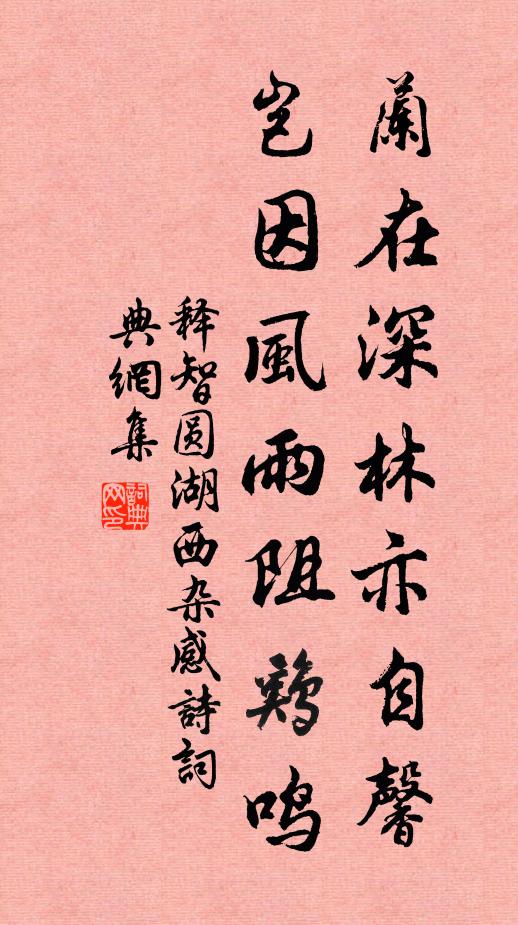 蘭在深林亦自馨
豈因風雨阻鷄鳴
释智圆湖西杂感詩詞
典網集
詞典
网印